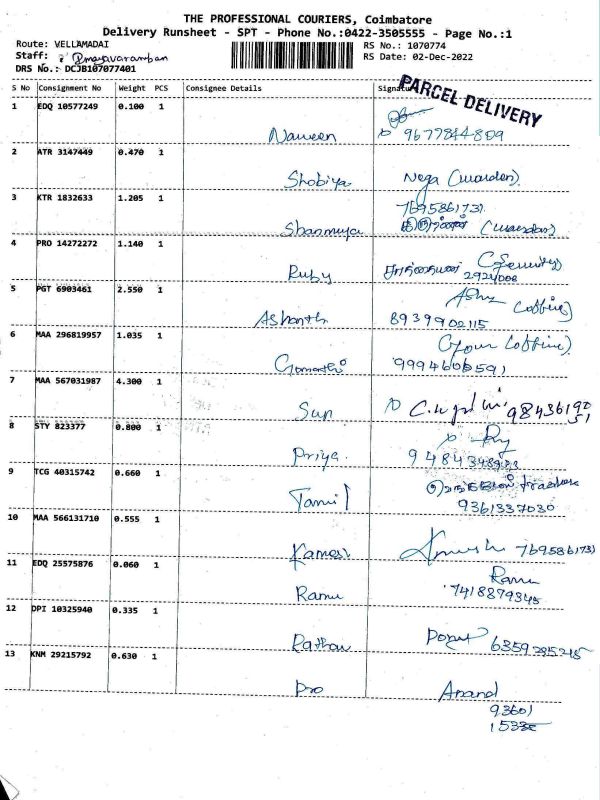 THE PROFESSIONAL COURIERS, Coimbatore
Delivery Runsheet - SPT - Phone No.:0422-3505555 - Page No.:1
Route: VELLAMADAI
RS No.: 1070774
Staff:
RS Date: 02-Dec-2022
DRS No.: DCJB107077401
PARCEL DELIVERY
S No Consignment No Weight PCS Consignee Details Signature
1 EDQ 10577249 0.100 1
Naveen 9677844809
2 ATR 3147449 0.470 1
Shobiya Nega (warden)
3 KTR 1832633 1.205 1
7695861731
Shanmuga (warden)
4 PRO 14272272 1.140 1
(Security)
Ruby 2924006
5 PGT 6903461 2.550 1
(office)
Ashanth 8939902115
6 MAA 296819957 1.035 1
(office)
Gomathi 9994606591
7 MAA 567031987 4.300 1
Sun 9843619051
8 STY 823377 0.800 1
Priya
9 TCG 40315742 0.660 1
Tamil 9361337030
10 MAA 566131710 0.555 1
Kamesh 7695861731
11 EDQ 25575876 0.060 1
Ramu
Ramu 7418879345
12 DPI 10325940 0.335 1
6359295215
13 KNM 29215792 0.630 1
Pro Anand
93601
1533